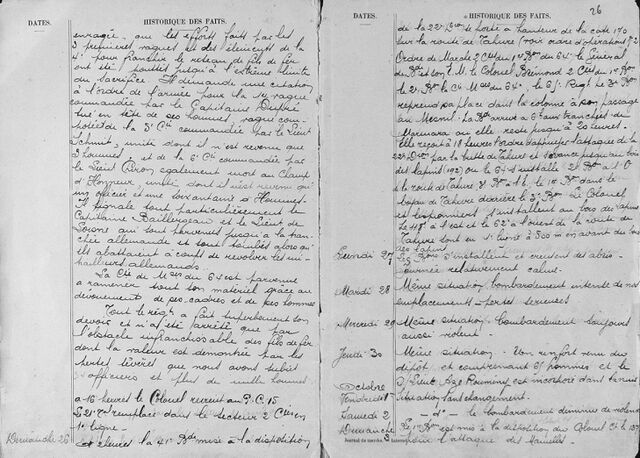 DATES.
HISTORIQUE DES FAITS.
enragée, que les efforts faits par les
3 premières vagues et des éléments de la
4e pour franchir le réseau de fils de fer
ont été poussés jusqu'à l'extrême limite
du sacrifice. Il demande une citation
à l'ordre de l'armée pour la 1re vague
commandée par le Capitaine
tué en tête de ses hommes, vague com-
posée de la 5e Cie commandée par le Lieut
Schmit, unité dont il n'est revenue que
hommes, et de la 6e Cie commandée par
le Lieut Piron également mort au Champ
d'Honneur, unité dont il n'est revenu qu'
un officier et une soixantaine d'Hommes.
Il signale tout particulièrement le
Capitaine Baillergeau et le Lieut de
qui sont parvenus jusqu'à la tran-
chée allemande et sont tombés alors qu'
ils abattaient à coups de revolver les mi-
trailleurs allemands.
La Cie de Mses du 64 est parvenue
a ramener tout son matériel grâce au
dévouement de ses cadres et de ses hommes
Tout le régt a fait superbement son
devoir et n'a été arrêté que par
l'obstacle infranchissable des fils de fer
dont la valeur est démontrée par les
pertes sévères que nous avons subies
officiers et plus de mille hommes
a 16 heures le Colonel revient au P.C. 15
Le 21e Cie remplace dans le secteur 2 Cies en
1re ligne
Dimanche 26
heures la 41e Bde mise à la disposition
26
DATES.
HISTORIQUE DES FAITS.
de la 22e Don se porte à hauteur de la cote 170
sur la route de Tahure (voir ordre d'opérations no 2
Ordre de Marche 2 Cies du 1er Bon du 64e le Général
de Bde et son E.M. le Colonel Brémond 2 Cies du 1er Bon
le 2e Bon la Cie Mses du 64e, le 65e Regt. Le 3e Bon
reprend sa place dans la colonne à son passage
au Mesnil. La Bde arrive à 6h aux tranchées de
Marmara où elle reste jusqu'à 20 heures.
Elle reçoit à 18 heures l'ordre d'appuyer l'attaque de la
22e Don par la butte de Tahure et s'avance jusqu'au bois
des lapins (192) où le 64 s'installe 2e Bon à l'O
de la route de Tahure 3e Bon à l'E, le 1er Bon dans le
ravin de Tahure derrière le 3e Bon. Le Colonel
et les pionniers s'installent au bois des lapins
le 48e à l'est et le 62e à l'ouest de la route de
Tahure sont en 1e ligne à 500 m en avant du bois
des lapins
Lundi 27
Les Bons s'installent et creusent des abris
Journée relativement calme.
Mardi 28
Même situation bombardement intense de nos
emplacements - pertes sérieuses
Mercredi 29
Même situation - Bombardement toujours
aussi violent.
Jeudi 30
Même situation - Un renfort venu du
dépôt et comprenant 65 hommes et le
S/Lieut Aze Raymond est incorporé dans la nuit
Octobre
Vendredi 1er
Situation sans changement.
Samedi 2
d° - le bombardement diminue de violence
Dimanche 3
Le 1er Bon est mis à la disposition du Colonel Ct le 137
pour l'attaque des Mamelles